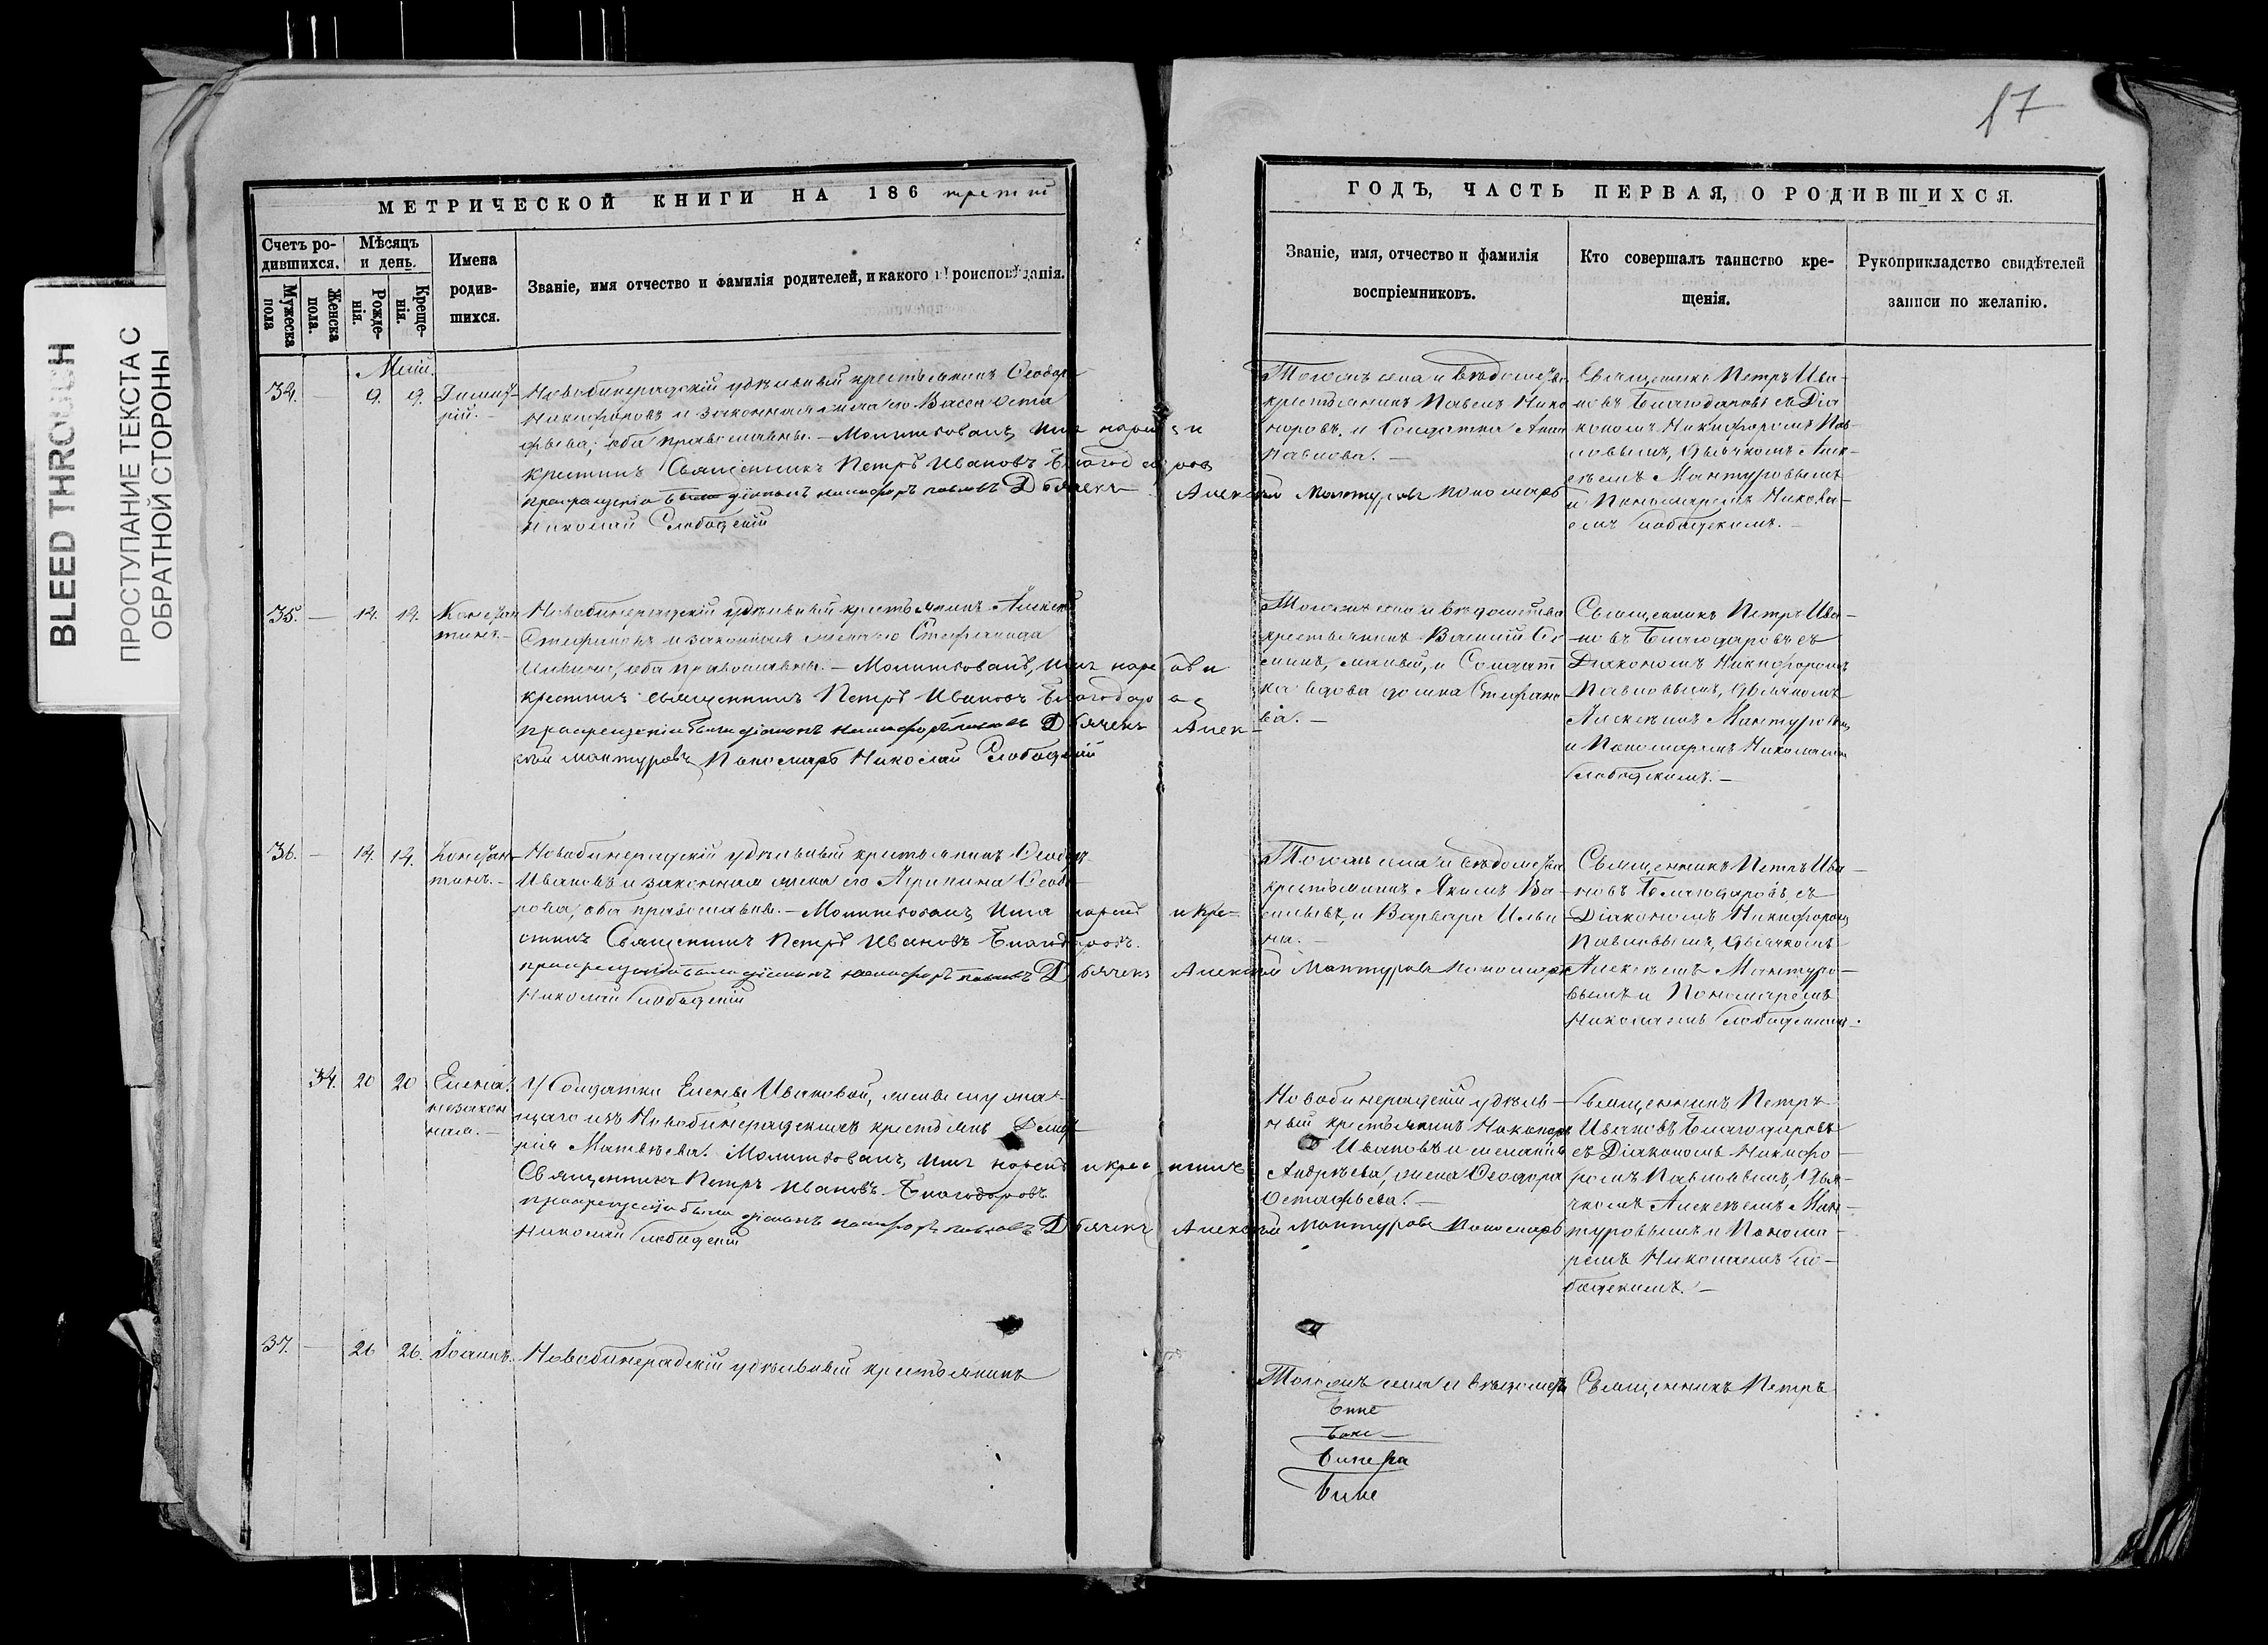 BLEED THROUGH
ПРОСТУПАНИЕ ТЕКСТА С
ОБРАТНОЙ СТОРОНЫ
17
МЕТРИЧЕСКОЙ КНИГИ НА 186 третій
Счетъ ро-
дившихся.
Мужеска
пола
Женска
пола.
Мѣсяцъ
и день.
Рожде-
нія.
Креще-
нія.
Имена
родив-
шихся.
Званіе, имя отчество и фамилія родителей, и какого вѣроисповѣданія.
ГОДЪ, ЧАСТЬ ПЕРВАЯ, О РОДИВШИХСЯ.
Званіе, имя, отчество и фамилія
воспріемниковъ.
Кто совершалъ таинство кре-
щенія.
Рукоприкладство свидѣтелей
записи по желанію.
Маій.
34. — 9. 9. Димит-
рій. —
Новобинерадскій удѣльный крестьянинъ Ѳеодоръ
Никифоровъ и законная жена его Васса Оста
фьева; оба православны. — Молитвовалъ, имя нарекъ и
крестилъ Священникъ Петръ Ивановъ Благодаровъ
при крещеніи были діаконъ Никифоръ Павловъ Дьячекъ Алексѣй Мантуровъ Пономарь
Николай Слободскій
Тогожъ села и вѣдомства
крестьянинъ Павелъ Нико
норовъ, и Солдатка Анна
Павлова. —
Священникъ Петръ Ива-
новъ Благодаровъ съ Діа
кономъ Никифоромъ Пав-
ловымъ, Дьячкомъ Алек-
сѣемъ Мантуровымъ
и Пономаремъ Никола-
емъ Слободскимъ. —
35. — 14. 14. Констан
тинъ. —
Новобинерадскій удѣльный крестьянинъ Алексѣй
Стефановъ и законная жена его Стефанида
Ильина, оба православны. — Молитвовалъ, имя нарекъ и
крестилъ священникъ Петръ Ивановъ Благодаровъ
при крещеніи были діаконъ Никифоръ Павловъ Дьячекъ Алек-
сѣй Мантуровъ Пономарь Николай Слободскій
Тогожъ села и вѣдомства
крестьянинъ Василій
и Солдат
ка вдова Стефано
ва. —
Священникъ Петръ Ива-
новъ Благодаровъ съ
Діакономъ Никифоромъ
Павловымъ, Дьячкомъ
Алексѣемъ Мантуровымъ
и Пономаремъ Николаемъ
Слободскимъ. —
36. — 14. 14. Констан-
тинъ. —
Новобинерадскій удѣльный крестьянинъ Ѳеодоръ
Ивановъ и законная жена его Агрипина Ѳеодо-
рова, оба православны. — Молитвовалъ, имя нарекъ и кре-
стилъ Священникъ Петръ Ивановъ Благодаровъ.
при крещеніи были діаконъ Никифоръ Павловъ Дьячекъ Алексѣй Мантуровъ Пономарь
Николай Слободскій
Тогожъ села и вѣдомства
крестьянинъ Якимъ Ва-
сильевъ, и Варвара Ильи
на. —
Священникъ Петръ Ива-
новъ Благодаровъ, съ
Діакономъ Никифоромъ
Павловымъ, Дьячкомъ
Алексѣемъ Мантуро-
вымъ и Пономаремъ
Николаемъ Слободскимъ.
34. 20 20 Елена.
незакон
ная. —
У Солдатки Елены Ивановой, жены служа-
щаго изъ Новобинерадскихъ крестьянъ Димит
рія Матвѣева. Молитвовалъ, имя нарекъ и крестилъ
Священникъ Петръ Ивановъ Благодаровъ
при крещеніи были діаконъ Никифоръ Павловъ Дьячекъ Алексѣй Мантуровъ Пономарь
Николай Слободскій
Новобинерадскій удѣль-
ный крестьянинъ
Ивановъ и
Андрѣева, жена Ѳеодора
Остафьева. —
Священникъ Петръ
Ивановъ Благодаровъ
съ Діакономъ Никифо-
ромъ Павловымъ, Дья-
чкомъ Алексѣемъ Ман-
туровымъ и Понома-
ремъ Николаемъ Сло-
бодскимъ. —
37. — 26 26. Іоаннъ.
Новобинерадскій удѣльный крестьянинъ
Тогожъ села и вѣдомства
Священникъ Петръ
Бине
Бине
Бинера
Бине